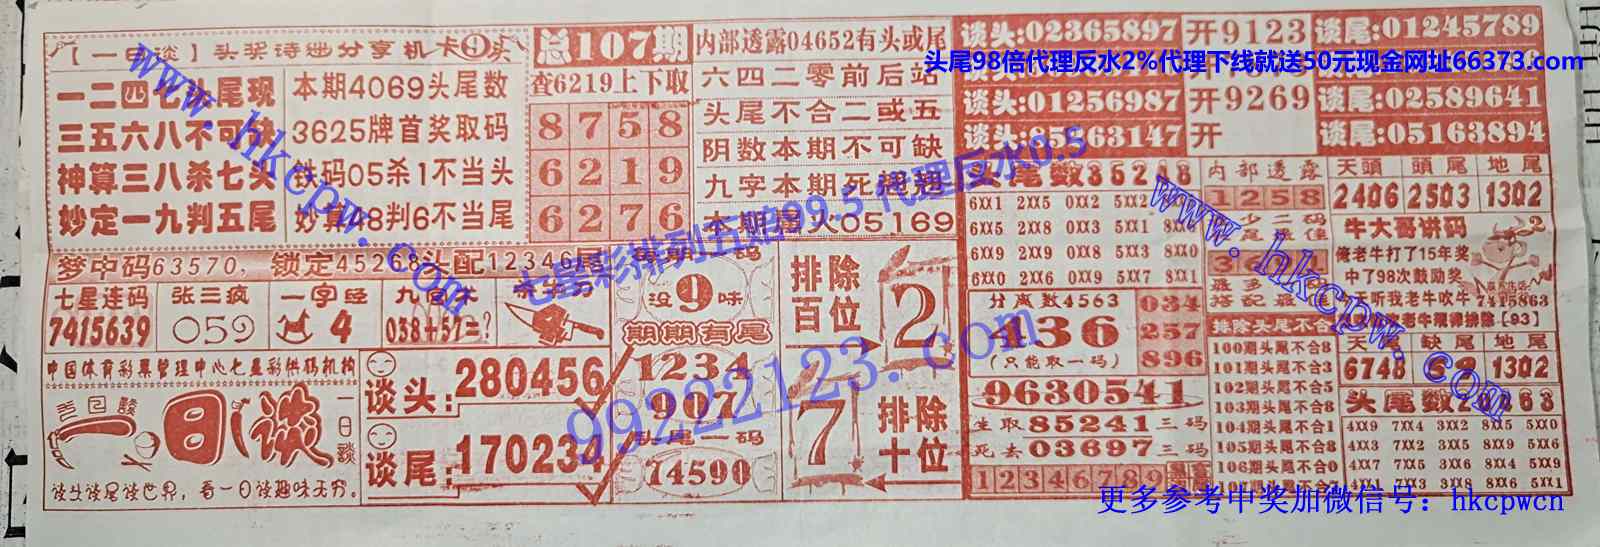 【一日谈】头奖诗迷分享机卡9头
一二四七头尾现
三五六八不可缺
神算三八杀七头
妙定一九判五尾
本期4069头尾数
3625牌首奖取码
铁码05杀1不当头
妙算48判6不当尾
总107期
查6219上下取
8758
6219
6276
内部透露04652有头或尾
六四二零前后站
头尾不合二或五
阴数本期不可缺
九字本期死翘翘
本期四火05169
谈头:02365897 开9123 谈尾:01245789
谈头:01256987 开9269 谈尾:02589641
谈头:85563147 开 谈尾:05163894
头尾98倍代理反水2%代理下线就送50元现金网址66373.com
梦中码63570,锁定45268头配12346尾
七星连码
7415639
张三疯
059
一字经
4
038+57=?
中国体育彩票管理中心七星彩供码机构
一日谈
一日谈
谈头谈尾谈世界,看一日谈趣味无穷。
谈头:280456
谈尾:170234
没9味
期期有尾
1234
907
头尾一码
74590
排除百位
2
7
排除十位
头尾数35248
6XX1 2XX5 0XX2 5XX2
6XX5 2XX8 0XX3 5XX1 8XX0
6XX9 2XX9 0XX5 5XX8
6XX0 2XX6 0XX9 5XX7 8XX1
分离数4563
436
(只能取一码)
034
257
896
9630541
生取85241三码
死去03697三码
123456789
内部透露
1258
排除头尾不合
100期头尾不合8
101期头尾不合3
102期头尾不合5
103期头尾不合8
104期头尾不合1
105期头尾不合8
106期头尾不合0
天頭 頭尾 地尾
2406 2503 1302
牛大哥讲码
俺老牛打了15年奖
中了98次鼓励奖
听我老牛吹牛
7415863
老牛规律排除【93】
缺尾 地尾
6748 1302
4XX9 7XX4 3XX2 8XX5 5XX0
4XX8 7XX2 3XX5 8XX9 5XX6
4XX7 7XX5 3XX6 8XX6 5XX9
4XX1 7XX8 3XX1 8XX7 5XX3
www.hkcpw.com
www.hkcpw.com
七星彩排列五赔99.5代理反水0.5
99222123.com
更多参考中奖加微信号：hkcpwcn